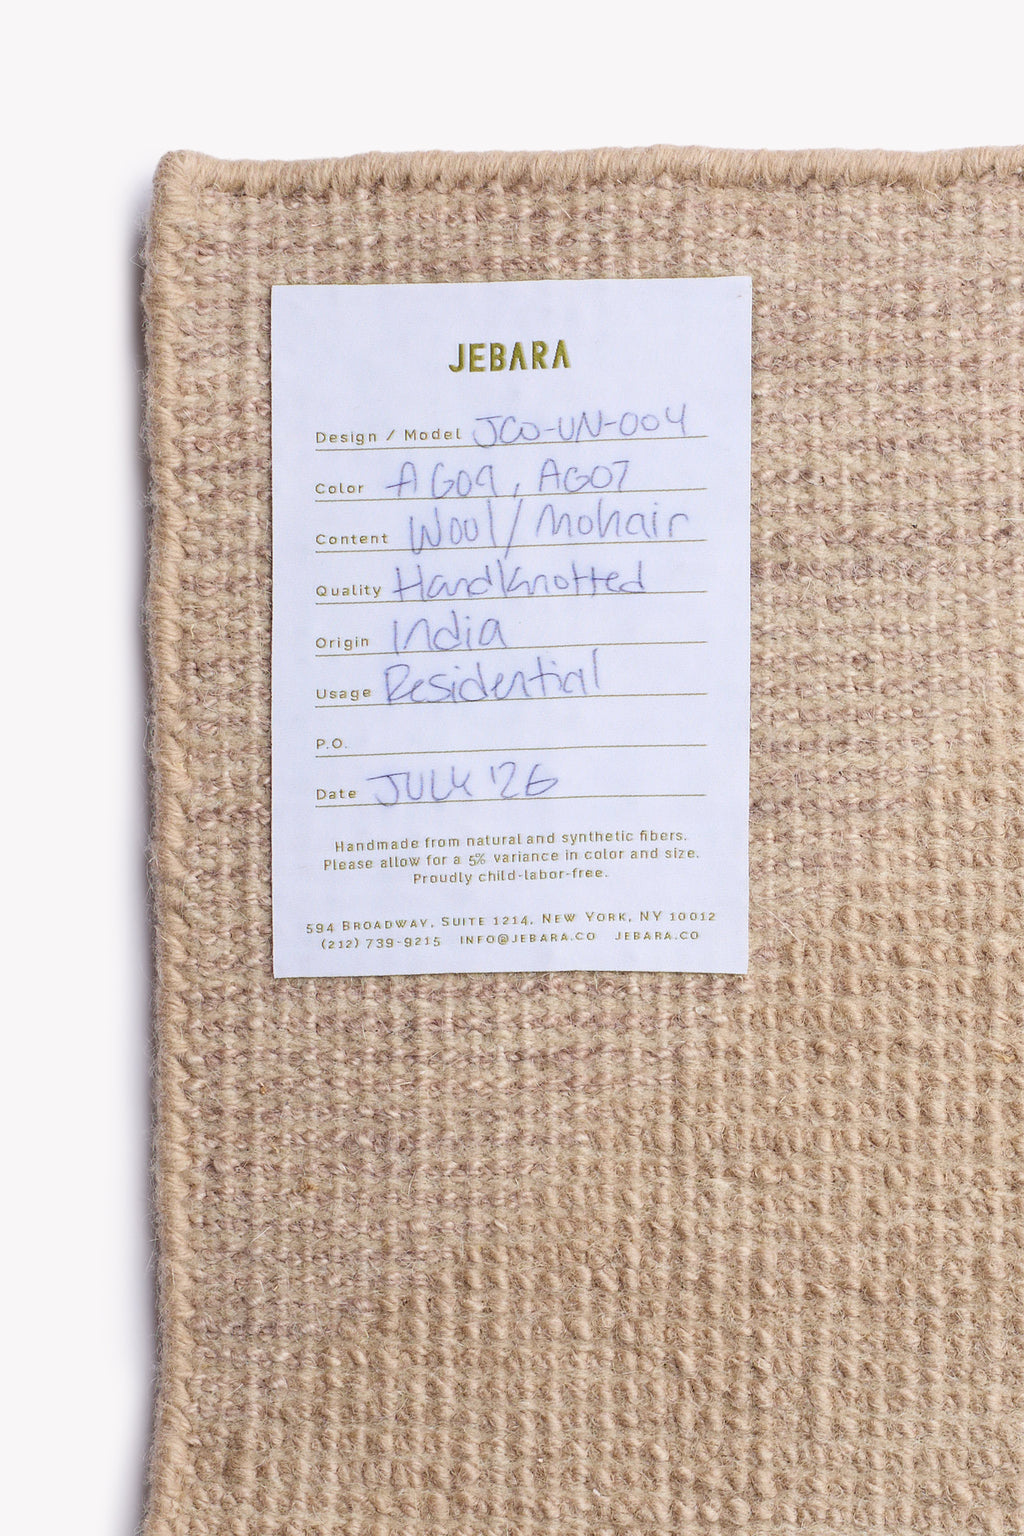 JEBARA
Design / Model JCO-UN-004
Color AG09, AG07
Content Wool/Mohair
Quality Handknotted
Origin India
Usage Residential
P.O.
Date JULY '26
Handmade from natural and synthetic fibers.
Please allow for a 5% variance in color and size.
Proudly child-labor-free.
594 BROADWAY, SUITE 1214, NEW YORK, NY 10012
(212) 739-9215 INFO@JEBARA.CO JEBARA.CO